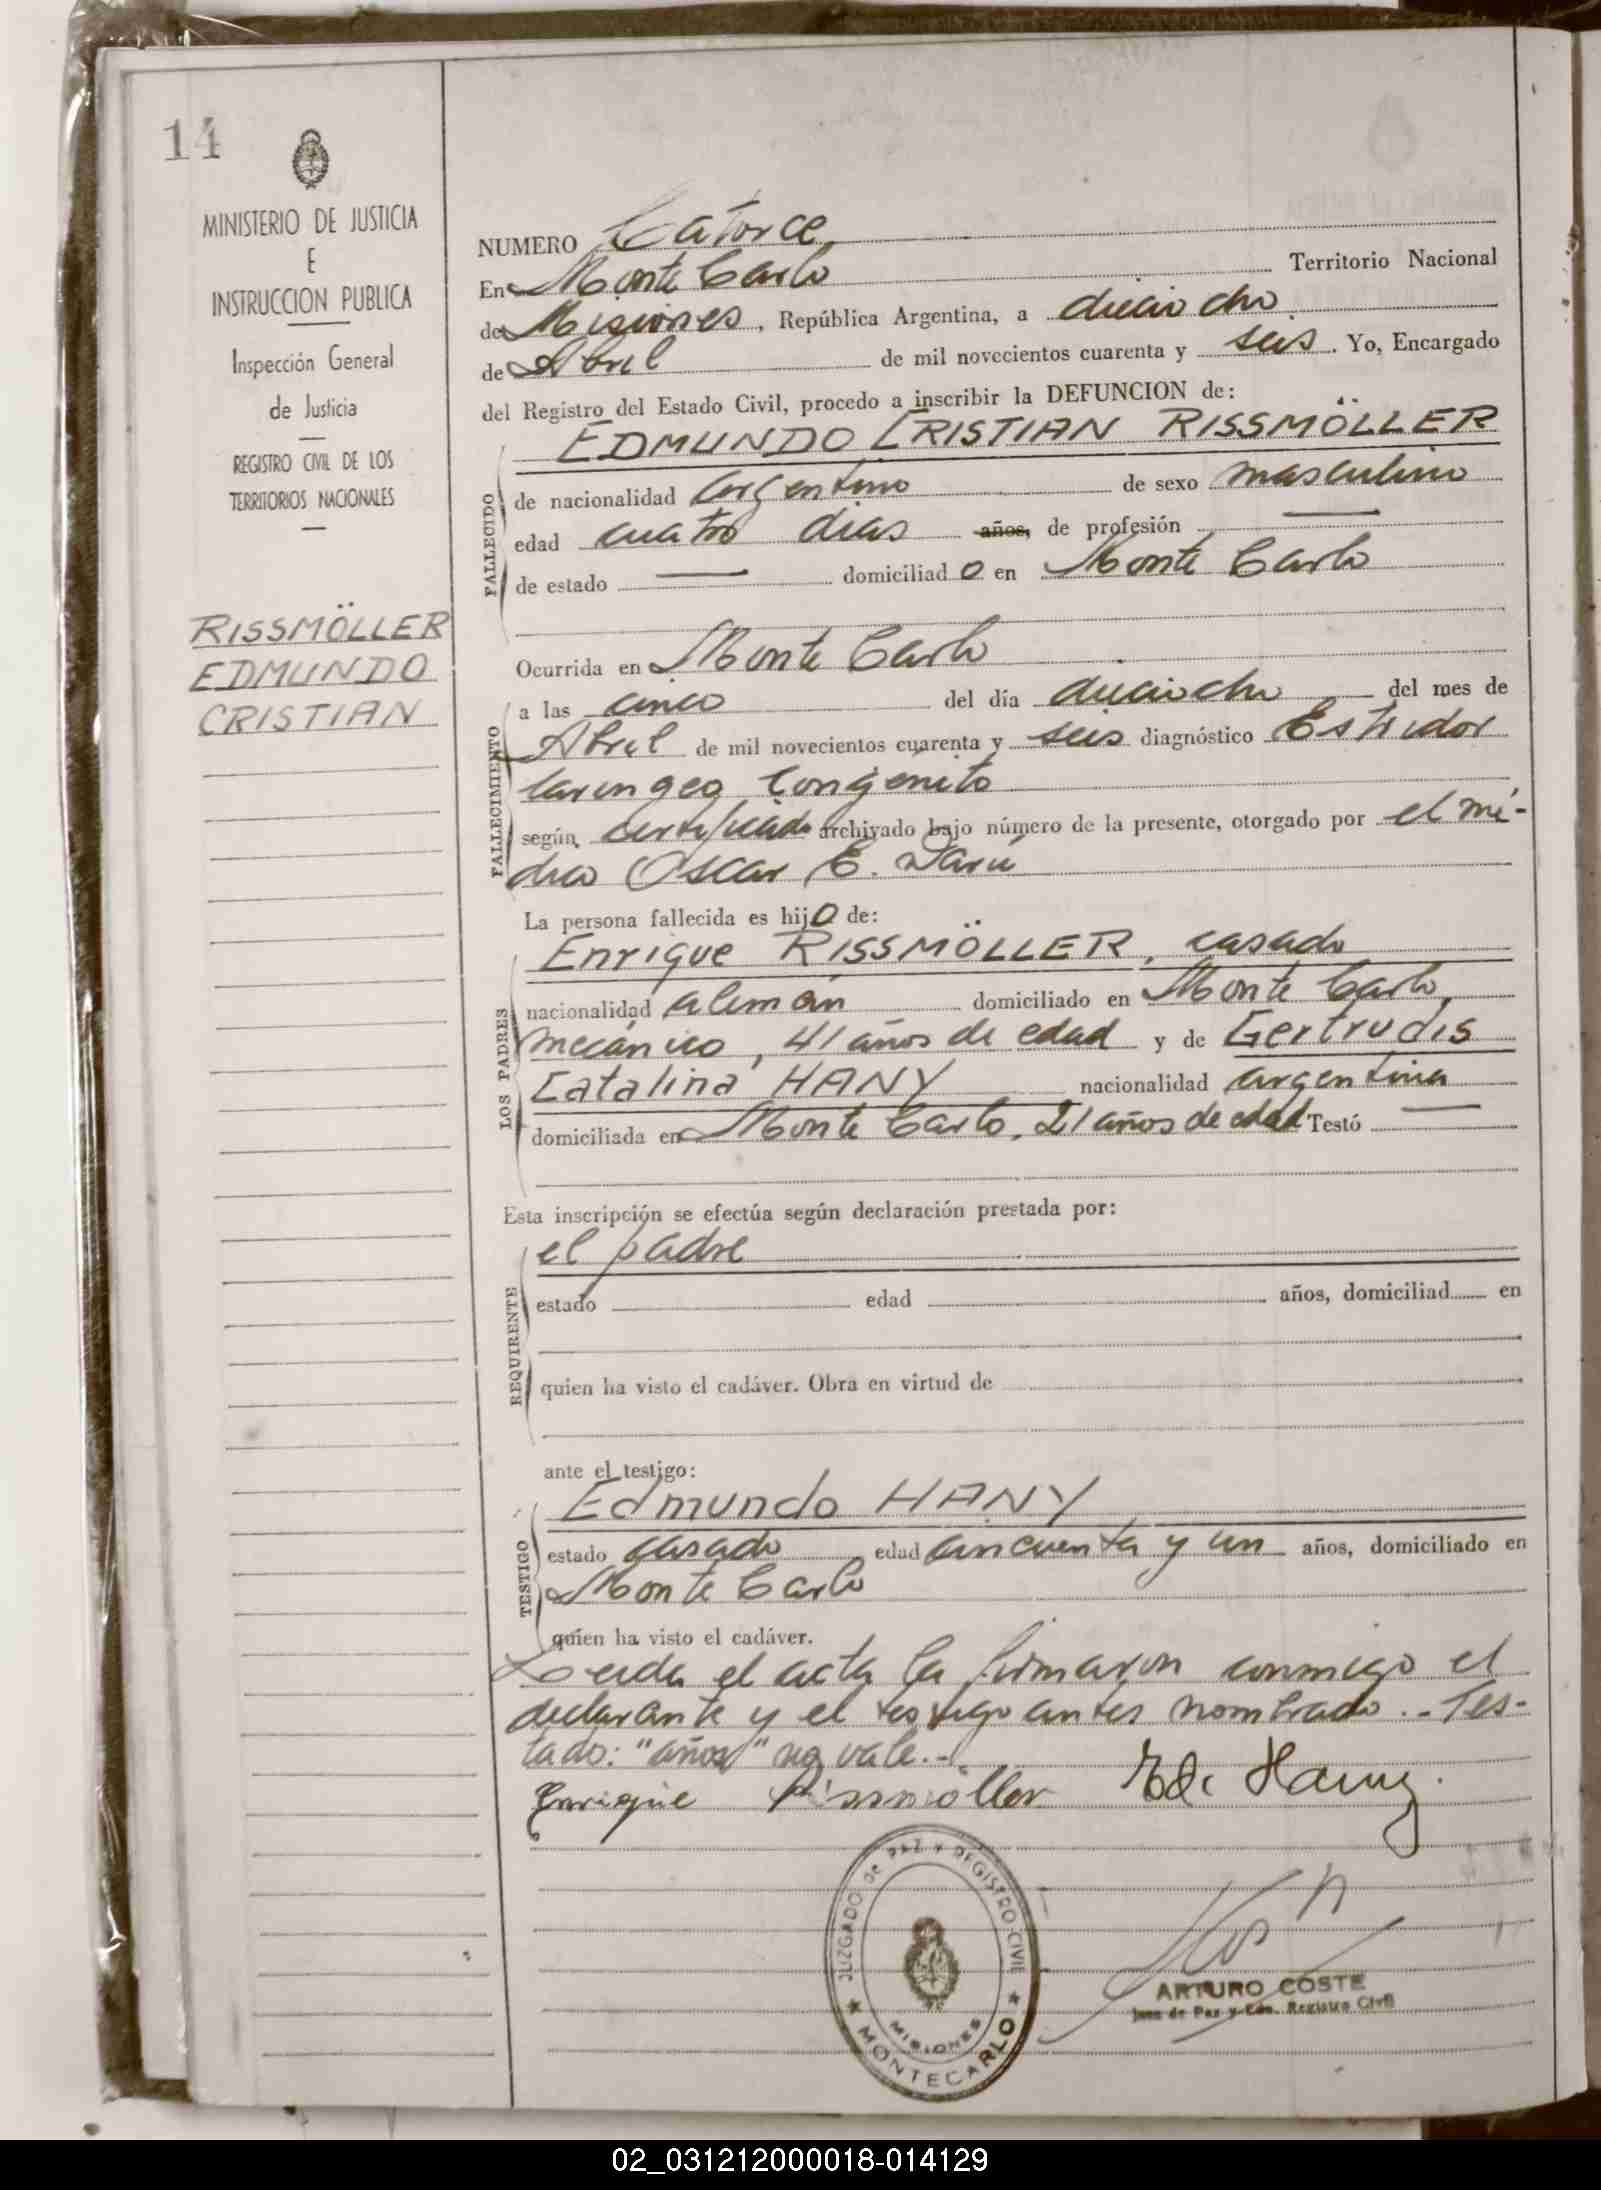 14
MINISTERIO DE JUSTICIA
E
INSTRUCCION PUBLICA
Inspección General
de Justicia
REGISTRO CIVIL DE LOS
TERRITORIOS NACIONALES
RISSMÖLLER
EDMUNDO
CRISTIAN
NUMERO Catorce
En Monte Carlo Territorio Nacional
de Misiones, República Argentina, a dieciocho
de Abril de mil novecientos cuarenta y seis. Yo, Encargado
del Registro del Estado Civil, procedo a inscribir la DEFUNCION de:
FALLECIDO
EDMUNDO CRISTIAN RISSMÖLLER
de nacionalidad argentino de sexo masculino
edad cuatro dias años, de profesión —
de estado — domiciliado en Monte Carlo
FALLECIMIENTO
Ocurrida en Monte Carlo
a las cinco del día dieciocho del mes de
Abril de mil novecientos cuarenta y seis diagnóstico Estridor
laringeo Congénito
según certificado archivado bajo número de la presente, otorgado por el mé-
dico Oscar E. Darú
LOS PADRES
La persona fallecida es hijo de:
Enrique RISSMÖLLER, casado
nacionalidad alemán domiciliado en Monte Carlo,
mecánico, 41 años de edad y de Gertrudis
Catalina HANY nacionalidad argentina
domiciliada en Monte Carlo, 21 años de edad Testó —
Esta inscripción se efectúa según declaración prestada por:
REQUIRENTE
el padre
estado edad años, domiciliad en
quien ha visto el cadáver. Obra en virtud de
ante el testigo:
TESTIGO
Edmundo HANY
estado casado edad cincuenta y un años, domiciliado en
Monte Carlo
quien ha visto el cadáver.
Leida el acta la firmaron conmigo el
declarante y el testigo antes nombrado.- Tes-
tado: "años" no vale.-
Enrique Rissmöller Ed. Hany.
JUZGADO de PAZ Y REGISTRO CIVIL
MISIONES
★ MONTECARLO ★
ARTURO COSTE
Juez de Paz y Enc. Registro Civil
02_031212000018-014129